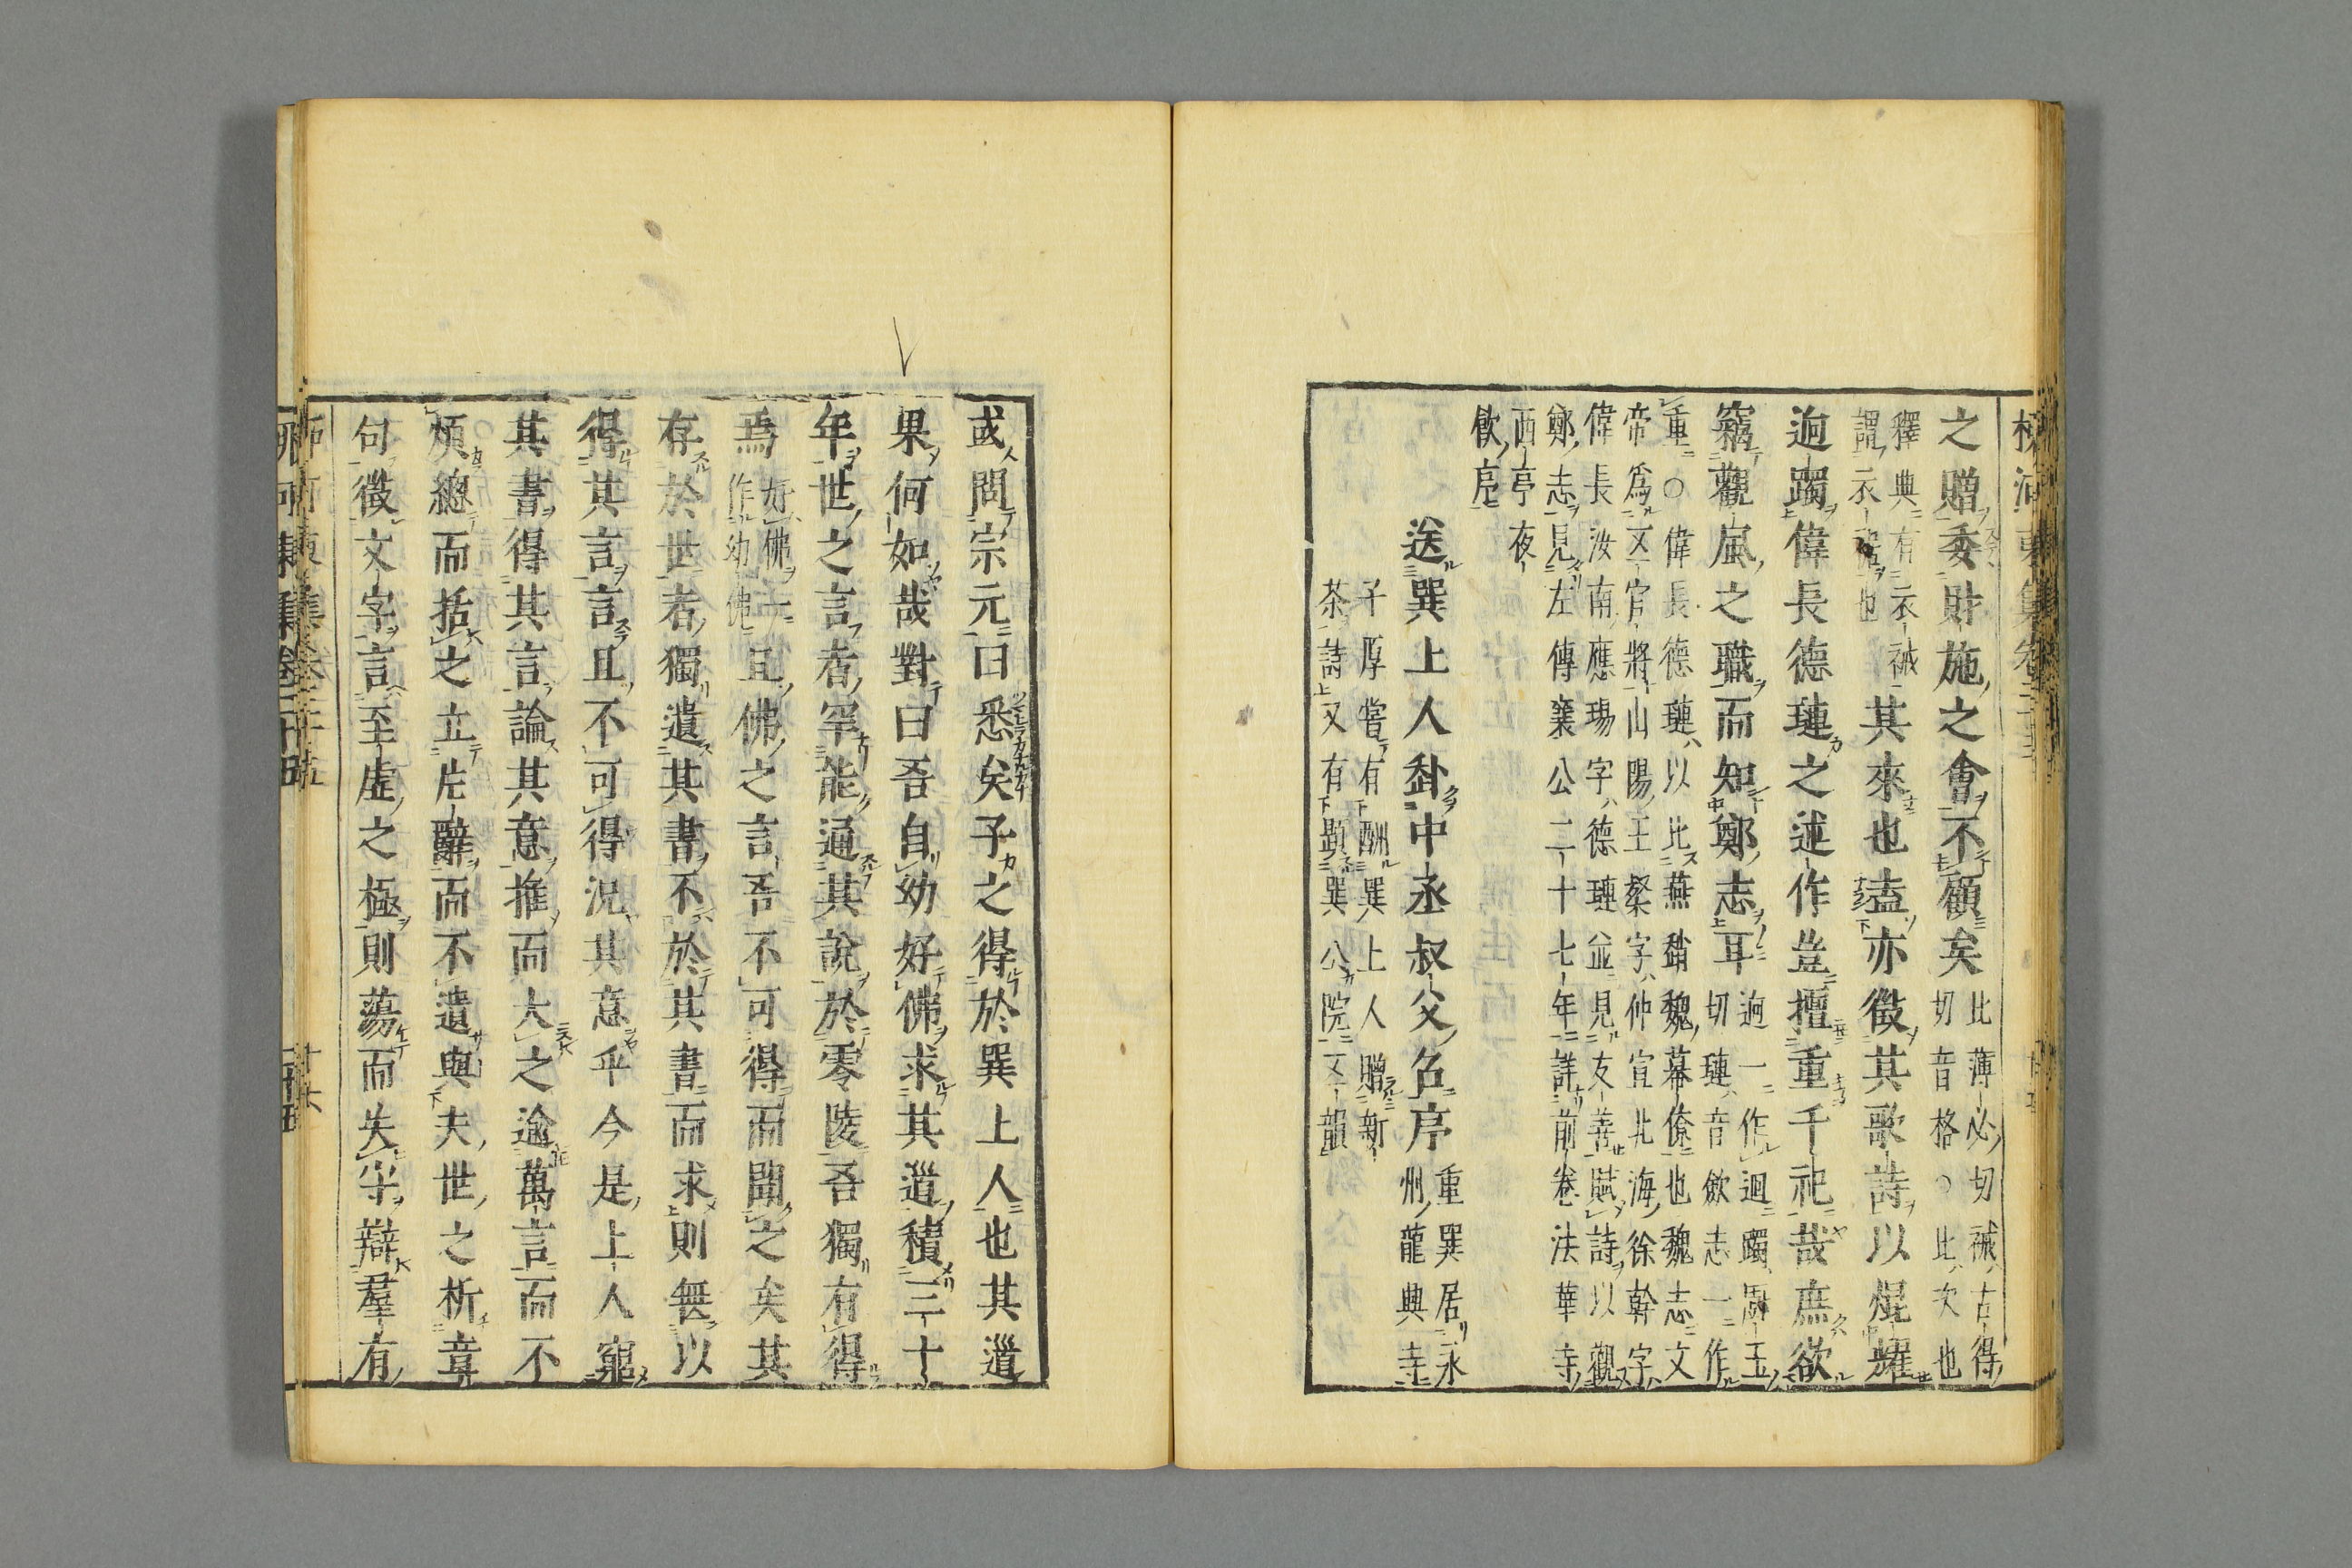 之贈委財施之會不顧矣比薄必切祴古得
切音格○比次也
釋典有衣祴
謂衣裓也
其來也盍亦徵其歌詩以焜燿
迥躅偉長德璉之述作豈擅重千祀哉庶欲
竊觀風之職而知鄭志耳迥一作迴躅厨玉
切璉音歛志一作
重○偉長德璉以比燕趙魏幕僚也魏志文
帝爲文官將山陽王粲字仲宣北海徐幹字
偉長汝南應瑒字德璉並見友善賦詩以觀
鄭志見左傳襄公二十七年詳前卷法華寺
西亭夜
飲序
送巽上人赴中丞叔父召序重巽居永
州龍興寺
子厚嘗有酬巽上人贈新
茶詩又有題巽公院五韻
或問宗元曰悉矣子之得於巽上人也其道
果何如哉對曰吾自幼好佛求其道積三十
年世之言者罕能通其說於零陵吾獨有得
焉好佛一
作幼佛
且佛之言吾不可得而聞之矣其
存於世者獨遺其書不於其書而求則無以
得其言言且不可得況其意乎今是上人窮
其書得其言論其意推而大之逾萬言而不
煩總而括之立片辭而不遺與夫世之析章
句徵文字言至虛之極則蕩而失守辯羣有